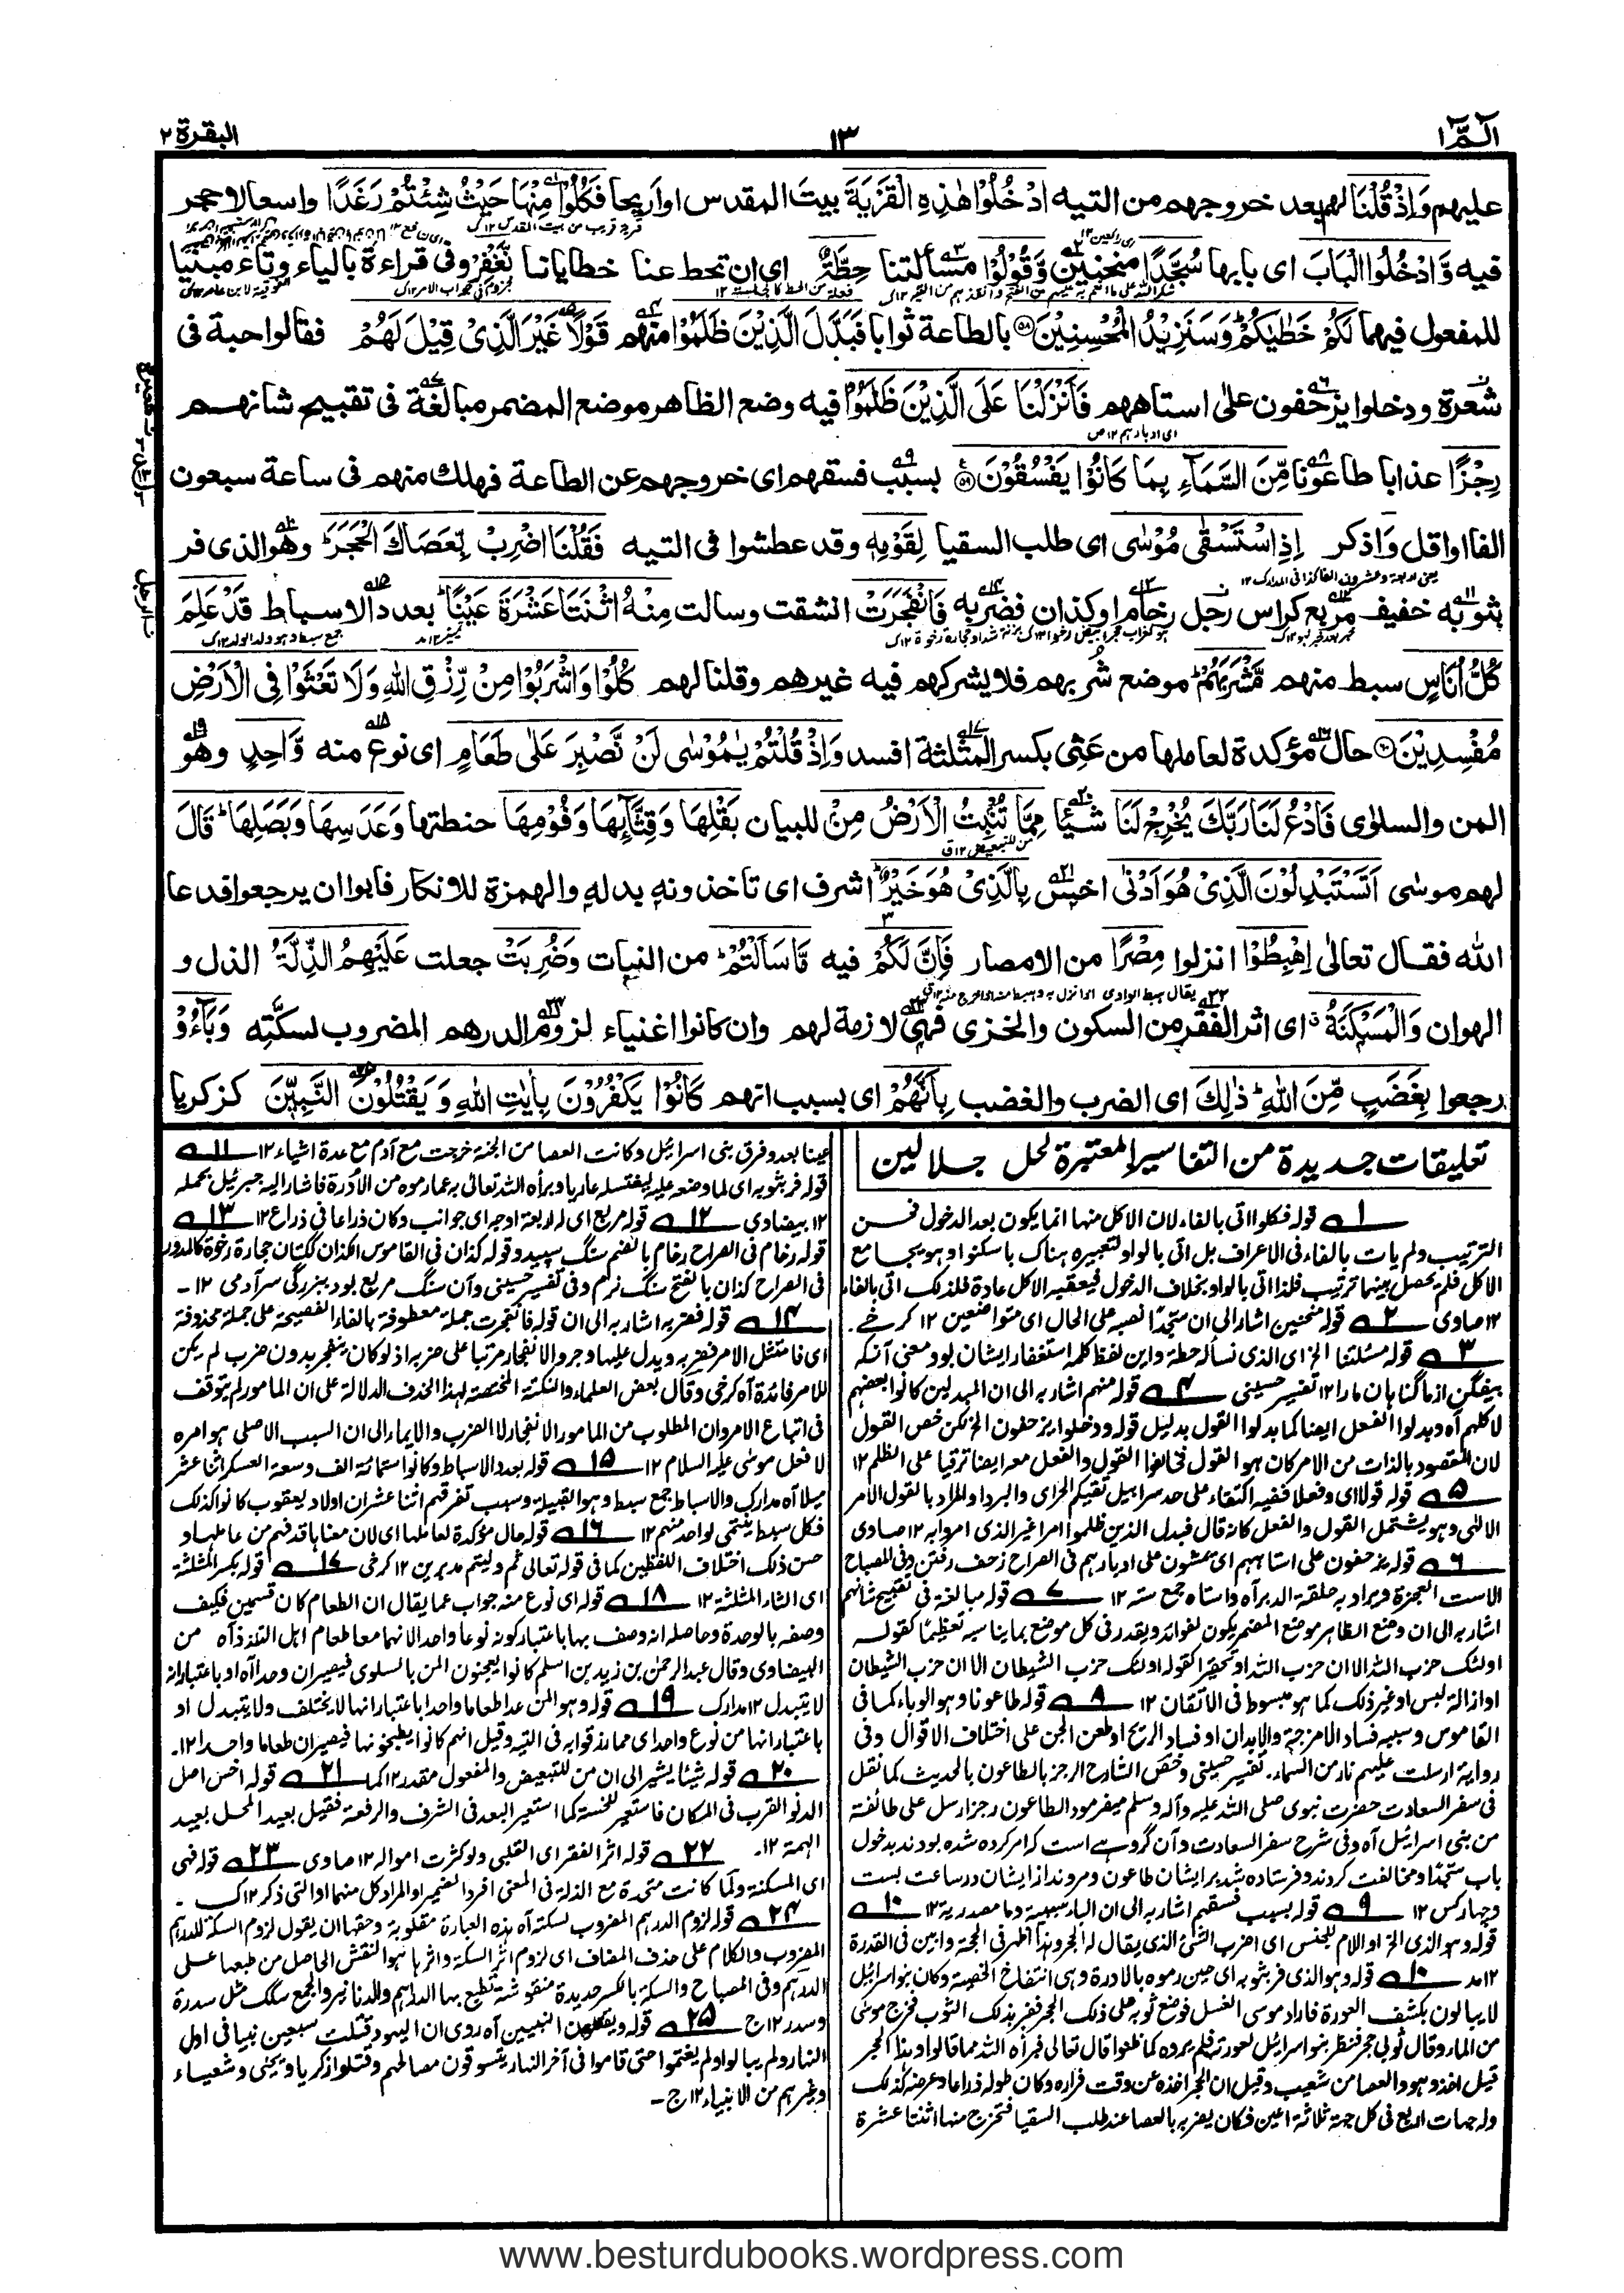 الٓمّٓ ١
١٣
البقرة ٢
عليهم وَاِذْ قُلْنَا لهم بعد خروجهم من التيه ادْخُلُوْا هٰذِهِ الْقَرْيَةَ بيتَ المقدس او اَريحا فَكُلُوْا مِنْهَا حَيْثُ شِئْتُمْ رَغَدًا واسعا لاحجر
فيه وَّادْخُلُوا الْبَابَ اى بابها سُجَّدًا منحنين وَّقُوْلُوْا مسألتنا حِطَّةٌ اى ان تحط عنا خطايانا نَّغْفِرْ وفى قراءة بالياء وتاء مبنيا
للمفعول فيهما لَكُمْ خَطٰيٰكُمْ ؕ وَسَنَزِيْدُ الْمُحْسِنِيْنَ ۝٥٨ بالطاعة ثوابا فَبَدَّلَ الَّذِيْنَ ظَلَمُوْا منهم قَوْلًا غَيْرَ الَّذِىْ قِيْلَ لَهُمْ فقالوا حبة فى
شعرة ودخلوا يزحفون على استاههم فَاَنْزَلْنَا عَلَى الَّذِيْنَ ظَلَمُوْا فيه وضع الظاهر موضع المضمر مبالغة فى تقبيح شانهم
اى ادبارهم ١٢ ص
رِجْزًا عذابا طاعونا مِّنَ السَّمَآءِ بِمَا كَانُوْا يَفْسُقُوْنَ ۝٥٩ بسبب فسقهم اى خروجهم عن الطاعة فهلك منهم فى ساعة سبعون
الفا او اقل وَاذكر اِذِ اسْتَسْقٰى مُوْسٰى اى طلب السقيا لِقَوْمِهٖ وقد عطشوا فى التيه فَقُلْنَا اضْرِبْ بِّعَصَاكَ الْحَجَرَ ؕ وهو الذى فر
يعنى اربعة وعشرون الفا كذا فى المدارك ١٢
بثوبه خفيف مربع كراس رجل رخام او كذان فضربه فَانْفَجَرَتْ انشقت وسالت مِنْهُ اثْنَتَا عَشْرَةَ عَيْنًا ؕ بعدد الاسباط قَدْ عَلِمَ
كُلُّ اُنَاسٍ سبط منهم مَّشْرَبَهُمْ ؕ موضع شُربهم فلا يشركهم فيه غيرهم وقلنا لهم كُلُوْا وَاشْرَبُوْا مِنْ رِّزْقِ اللّٰهِ وَلَا تَعْثَوْا فِى الْاَرْضِ
مُفْسِدِيْنَ ۝٦٠ حال مؤكدة لعاملها من عَثِىَ بكسر المثلثة افسد وَاِذْ قُلْتُمْ يٰمُوْسٰى لَنْ نَّصْبِرَ عَلٰى طَعَامٍ اى نوع منه وَّاحِدٍ وهو
المن والسلوٰى فَادْعُ لَنَا رَبَّكَ يُخْرِجْ لَنَا شيئا مِمَّا تُنْۢبِتُ الْاَرْضُ مِنْۢ للبيان بَقْلِهَا وَقِثَّآئِهَا وَفُوْمِهَا حنطتها وَعَدَسِهَا وَبَصَلِهَا ؕ قَالَ
لهم موسٰى اَتَسْتَبْدِلُوْنَ الَّذِىْ هُوَ اَدْنٰى اخس بِالَّذِىْ هُوَ خَيْرٌ ؕ اشرف اى تاخذونه بدله والهمزة للانكار فابوا ان يرجعوا فدعا
الله فقال تعالٰى اِهْبِطُوْا انزلوا مِصْرًا من الامصار فَاِنَّ لَكُمْ فيه مَّا سَاَلْتُمْ ؕ من النبات وَضُرِبَتْ جعلت عَلَيْهِمُ الذِّلَّةُ الذل و
الهوان وَالْمَسْكَنَةُ اى اثر الفقر من السكون والخزى فهى لازمة لهم وان كانوا اغنياء لزوم الدرهم المضروب لسكته وَبَآءُوْ
رجعوا بِغَضَبٍ مِّنَ اللّٰهِ ؕ ذٰلِكَ اى الضرب والغضب بِاَنَّهُمْ اى بسبب انهم كَانُوْا يَكْفُرُوْنَ بِاٰيٰتِ اللّٰهِ وَيَقْتُلُوْنَ النَّبِيّٖنَ كزكريا
تعليقات جديدة من التفاسير المعتبرة لحل جلالين
١ قوله فكلوا اتى بالفاء لان الاكل منها انما يكون بعد الدخول فحسن
الترتيب ولم يات بالفاء فى الاعراف بل اتى بالواو لتعبيره هناك باسكنوا وهو يجامع
الاكل فلم يحصل بينهما ترتيب فلذا اتى بالواو بخلاف الدخول فيعقبه الاكل عادة فلذلك اتى بالفاء
١٢ صاوى ٢ قوله منحنين اشار الى ان سجدًا نصبه على الحال اى متواضعين ١٢ كرخى
٣ قوله مسئلتنا الخ اى الذى نسأله حطة واين لفظ كلمه استغفار ايشان بود ومعنى آنكه
بيفگن از ما گناهان ما را ١٢ تفسير حسينى ٤ قوله منهم اشار به الى ان المبدلين كانوا بعضهم
لا كلهم آه وبدلوا الفعل ايضا كما بدلوا القول بدليل قوله ودخلوا يزحفون الخ لكن خص القول
لان المقصود بالذات من الامر كان هو القول فخالفوا القول والفعل معه ايضا ترقيا على الظلم ١٢
٥ قوله قولا اى وفعلا ففيه اكتفاء على حد سرابيل تقيكم الحر اى والبرد او المراد بالقول الامر
الالٰهى وهو يشتمل القول والفعل كانه قال فبدل الذين ظلموا امرا غير الذى امروا به ١٢ صاوى
٦ قوله يزحفون على استاههم اى يمشون على ادبارهم فى الصراح زحف رفتن وفى المصباح
الاست العجزة ويراد به حلقة الدبر آه واستاه جمع سته ١٢ ٧ قوله مبالغة فى تقبيح شانهم
اشار به الى ان وضع الظاهر موضع المضمر يكون لفوائد ويقدر فى كل موضع بما يناسبه تعظيمًا كقوله
اولئك حزب الله الا ان حزب الله او تحقيرا كقوله اولئك حزب الشيطان الا ان حزب الشيطان
او ازالة لبس او غير ذلك كما هو مبسوط فى الاتقان ١٢ ٨ قوله طاعونا وهو الوباء كما فى
القاموس وسببه فساد الامزجة والابدان او فساد الريح او طعن الجن على اختلاف الاقوال وفى
رواية ارسلت عليهم نار من السماء. تفسير حسينى وخص الشارح الرجز بالطاعون بالحديث كما نقل
فى سفر السعادت حضرت نبوى صلى الله عليه وآله وسلم ميفرمود الطاعون رجز ارسل على طائفة
من بنى اسرائيل آه وفى شرح سفر السعادت وآن گروہے است كه امر كرده شده بودند بدخول
باب سجدًا ومخالفت كردند و فرستاده شد بر ايشان طاعون ومردند از ايشان در ساعت بست
وچهار كس ١٢ ٩ قوله بسبب فسقهم اشار به الى ان الباء سببية وما مصدرية ١٢ ١٠
قوله وهو الذى الخ او اللام للجنس اى اضرب الشئ الذى يقال له الحجر وهذا اظهر فى الحجة وابين فى القدرة
١٢ مد ١٠ قوله وهو الذى فر بثوبه اى حين رموه بالادرة وهى انتفاخ الخصية وكان بنو اسرائيل
لا يبالون بكشف العورة فاراد موسى الغسل فوضع ثوبه على ذلك الحجر ففر بذلك الثوب فخرج موسى
من الماء وقال ثوبى حجر فنظر بنو اسرائيل لعورته فلم يروه كما ظنوا قال تعالى فبرأه الله مما قالوا وهذا الحجر
قيل اخذ هو والعصا من شعيب وقيل ان الحجر اخذه عن وقت فراره وكان طوله ذراعا وعرضه كذلك
وله جهات اربع فى كل جهة ثلاثة اعين فكان يضربه بالعصا عند طلب السقيا فتخرج منها اثنتا عشرة
عينا بعدد فرق بنى اسرائيل وكانت العصا من الجنة خرجت مع آدم مع عدة اشياء ١٢ ١١
قوله فر بثوبه اى لما وضعه عليه ليغتسل عاريا وبرأه الله تعالى به عما رموه من الادرة فاشار اليه جبرئيل بحمله
١٢ بيضاوى ١٢ قوله مربع اى له اربعة اوجه اى جوانب وكان ذراعا فى ذراع ١٢ ١٣
قوله رخام فى الصراح رخام بالضم سنگ سپيد وقوله كذان فى القاموس الكذان ككتان حجارة رخوة كالمدر
فى الصراح كذان بالفتح سنگ نرم وفى تفسير حسينى وآن سنگ مربع بود ببزرگى سر آدمى ١٢ ۔
١٤ قوله فضربه اشار به الى ان قوله فانفجرت جملة معطوفة بالفاء الفصيحة على جملة محذوفة
اى فامتثل الامر فضربه ويدل عليها وجود الانفجار مرتبا على ضربه اذ لو كان ينفجر بدون ضرب لم يكن
للامر فائدة آه كرخى وقال بعض العلماء والنكتة المختصة لهذا الحذف الدلالة على ان المامور لم يتوقف
فى اتباع الامر وان المطلوب من المامور الانفجار لا الضرب والايماء الى ان السبب الاصلى هو امره
لا فعل موسى عليه السلام ١٢ ١٥ قوله بعدد الاسباط وكانوا ستمائة الف وسعة العسكر اثنا عشر
ميلا آه مدارك والاسباط جمع سبط وهو القبيلة وسبب تفرقهم اثنا عشر ان اولاد يعقوب كانوا كذلك
فكل سبط ينتمى لواحد منهم ١٢ ١٦ قوله حال مؤكدة لعاملها اى لان معناها قد فهم من عاملها و
حسن ذلك اختلاف اللفظين كما فى قوله تعالى ثم وليتم مدبرين ١٢ كرخى ١٧ قوله بكسر المثلثة
اى الثاء المثلثة ١٢ ١٨ قوله اى نوع منه جواب عما يقال ان الطعام كان قسمين فكيف
وصفه بالوحدة وحاصله انه وصف بها باعتبار كونه نوعا واحدا لانهما معا طعام اهل التلذذ آه من
البيضاوى وقال عبد الرحمٰن بن زيد بن اسلم كانوا يعجنون المن بالسلوى فيصيران واحدا آه او باعتبار انه
لا يتبدل ١٢ مدارك ١٩ قوله وهو المن عدا طعاما واحدا باعتبار انها لا يختلف ولا يتبدل او
باعتبار انها من نوع واحد اى مما رزقوا به فى التيه وقيل انهم كانوا يطبخونها فيصيران طعاما واحدا ١٢۔
٢٠ قوله شيئا يشير الى ان من للتبعيض والمفعول مقدر ١٢ كما ٢١ قوله اخس اصل
الدنو القرب فى المكان فاستعير للخسة كما استعير البعد فى الشرف والرفعة فقيل بعيد المحل بعيد
الهمة ١٢۔ ٢٢ قوله اثر الفقر اى القلبى ولو كثرت امواله ١٢ صاوى ٢٣ قوله فهى
اى المسكنة ولما كانت متحدة مع الذلة فى المعنى افرد الضمير او المراد كل منهما او التى ذكر ١٢ ك ۔
٢٤ قوله لزوم الدرهم المضروب لسكته آه هذه العبارة مقلوبة وحقها ان يقول لزوم السكة للدرهم
المضروب والكلام على حذف المضاف اى لزوم اثر السكة واثرها هو النقش الحاصل من طبعها على
الدرهم وفى المصباح والسكة بالكسر حديدة منقوشة تطبع بها الدراهم والدنانير والجمع سكك مثل سدرة
وسدر ١٢ ج ٢٥ قوله ويقتلون النبيين آه روى ان اليهود قتلت سبعين نبيا فى اول
النهار ولم يبالوا ولم يغتموا حتى قاموا فى آخر النهار يتسوقون مصالحهم وقتلوا زكريا ويحيى وشعياء
وغيرهم من الانبياء ١٢ ج ۔
www.besturdubooks.wordpress.com